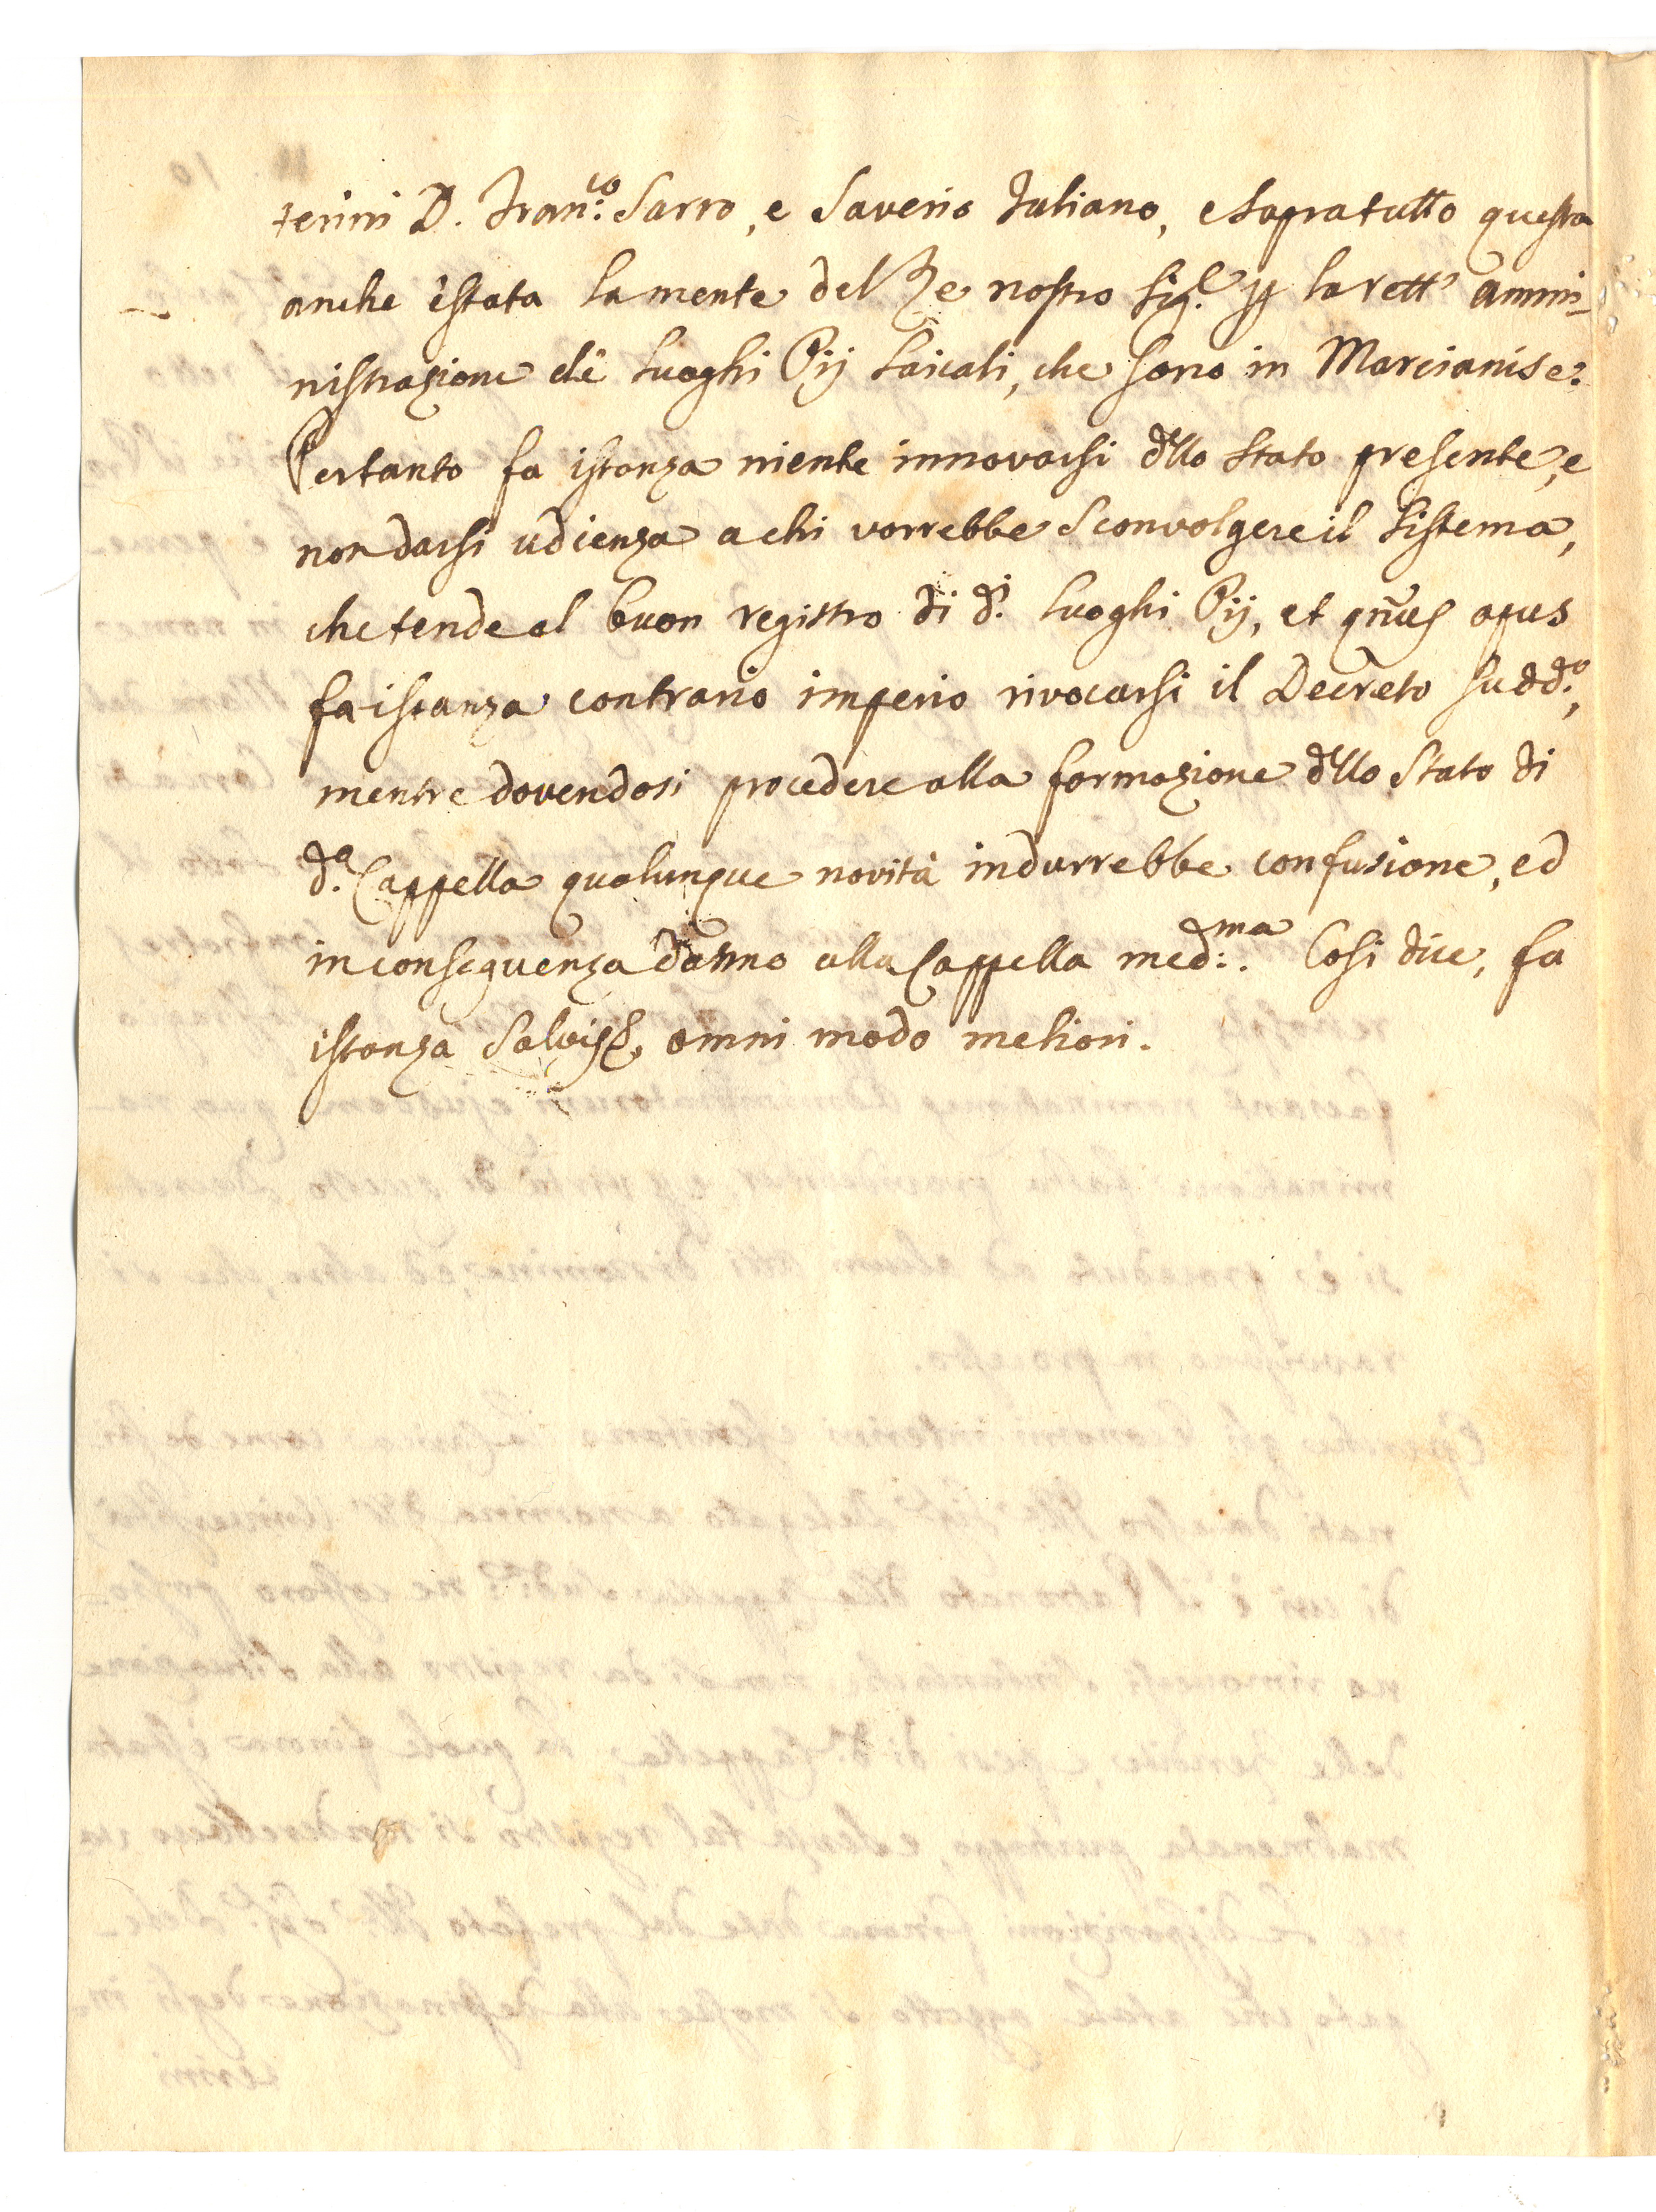 terini D. Fran.co Sarro, e Saverio Iuliano, e sopra tutto questa
anche è stata la mente del Re nostro Sig.e p la rett' ammi-
nistrazione de' Luoghi Pij Laicali, che sono in Marcianise:
Pertanto fa istanza niente innovarsi dllo Stato presente, e
non darsi udienza a chi vorrebbe sconvolgere il sistema,
che tende al buon registro di d.i Luoghi Pij, et opus
fa istanza contrario imperio rivocarsi il Decreto sudd.o,
mentre dovendosi procedere alla formazione dllo Stato di
d.a Cappella qualunque novità indurrebbe confusione, ed
in conseguenza danno alla Cappella med.ma. Così dice, fa
istanza omni modo meliori.